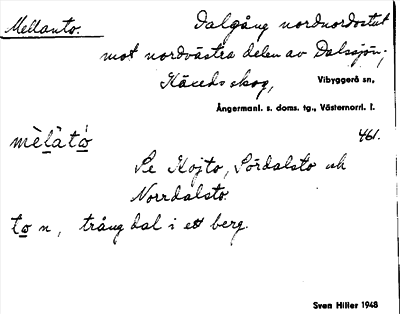 Mellanto. Dalgång nordnordostut
mot nordvästra delen av Dalssjön,
Käxeds skog, Vibyggerå sn,
Ångermanl. s. doms. tg., Västernorrl. l.
mèlàtó 461.
Se Kojto, Sördalsto och
Norrdalsto.
to n, trång dal i ett berg.
Sven Hiller 1948